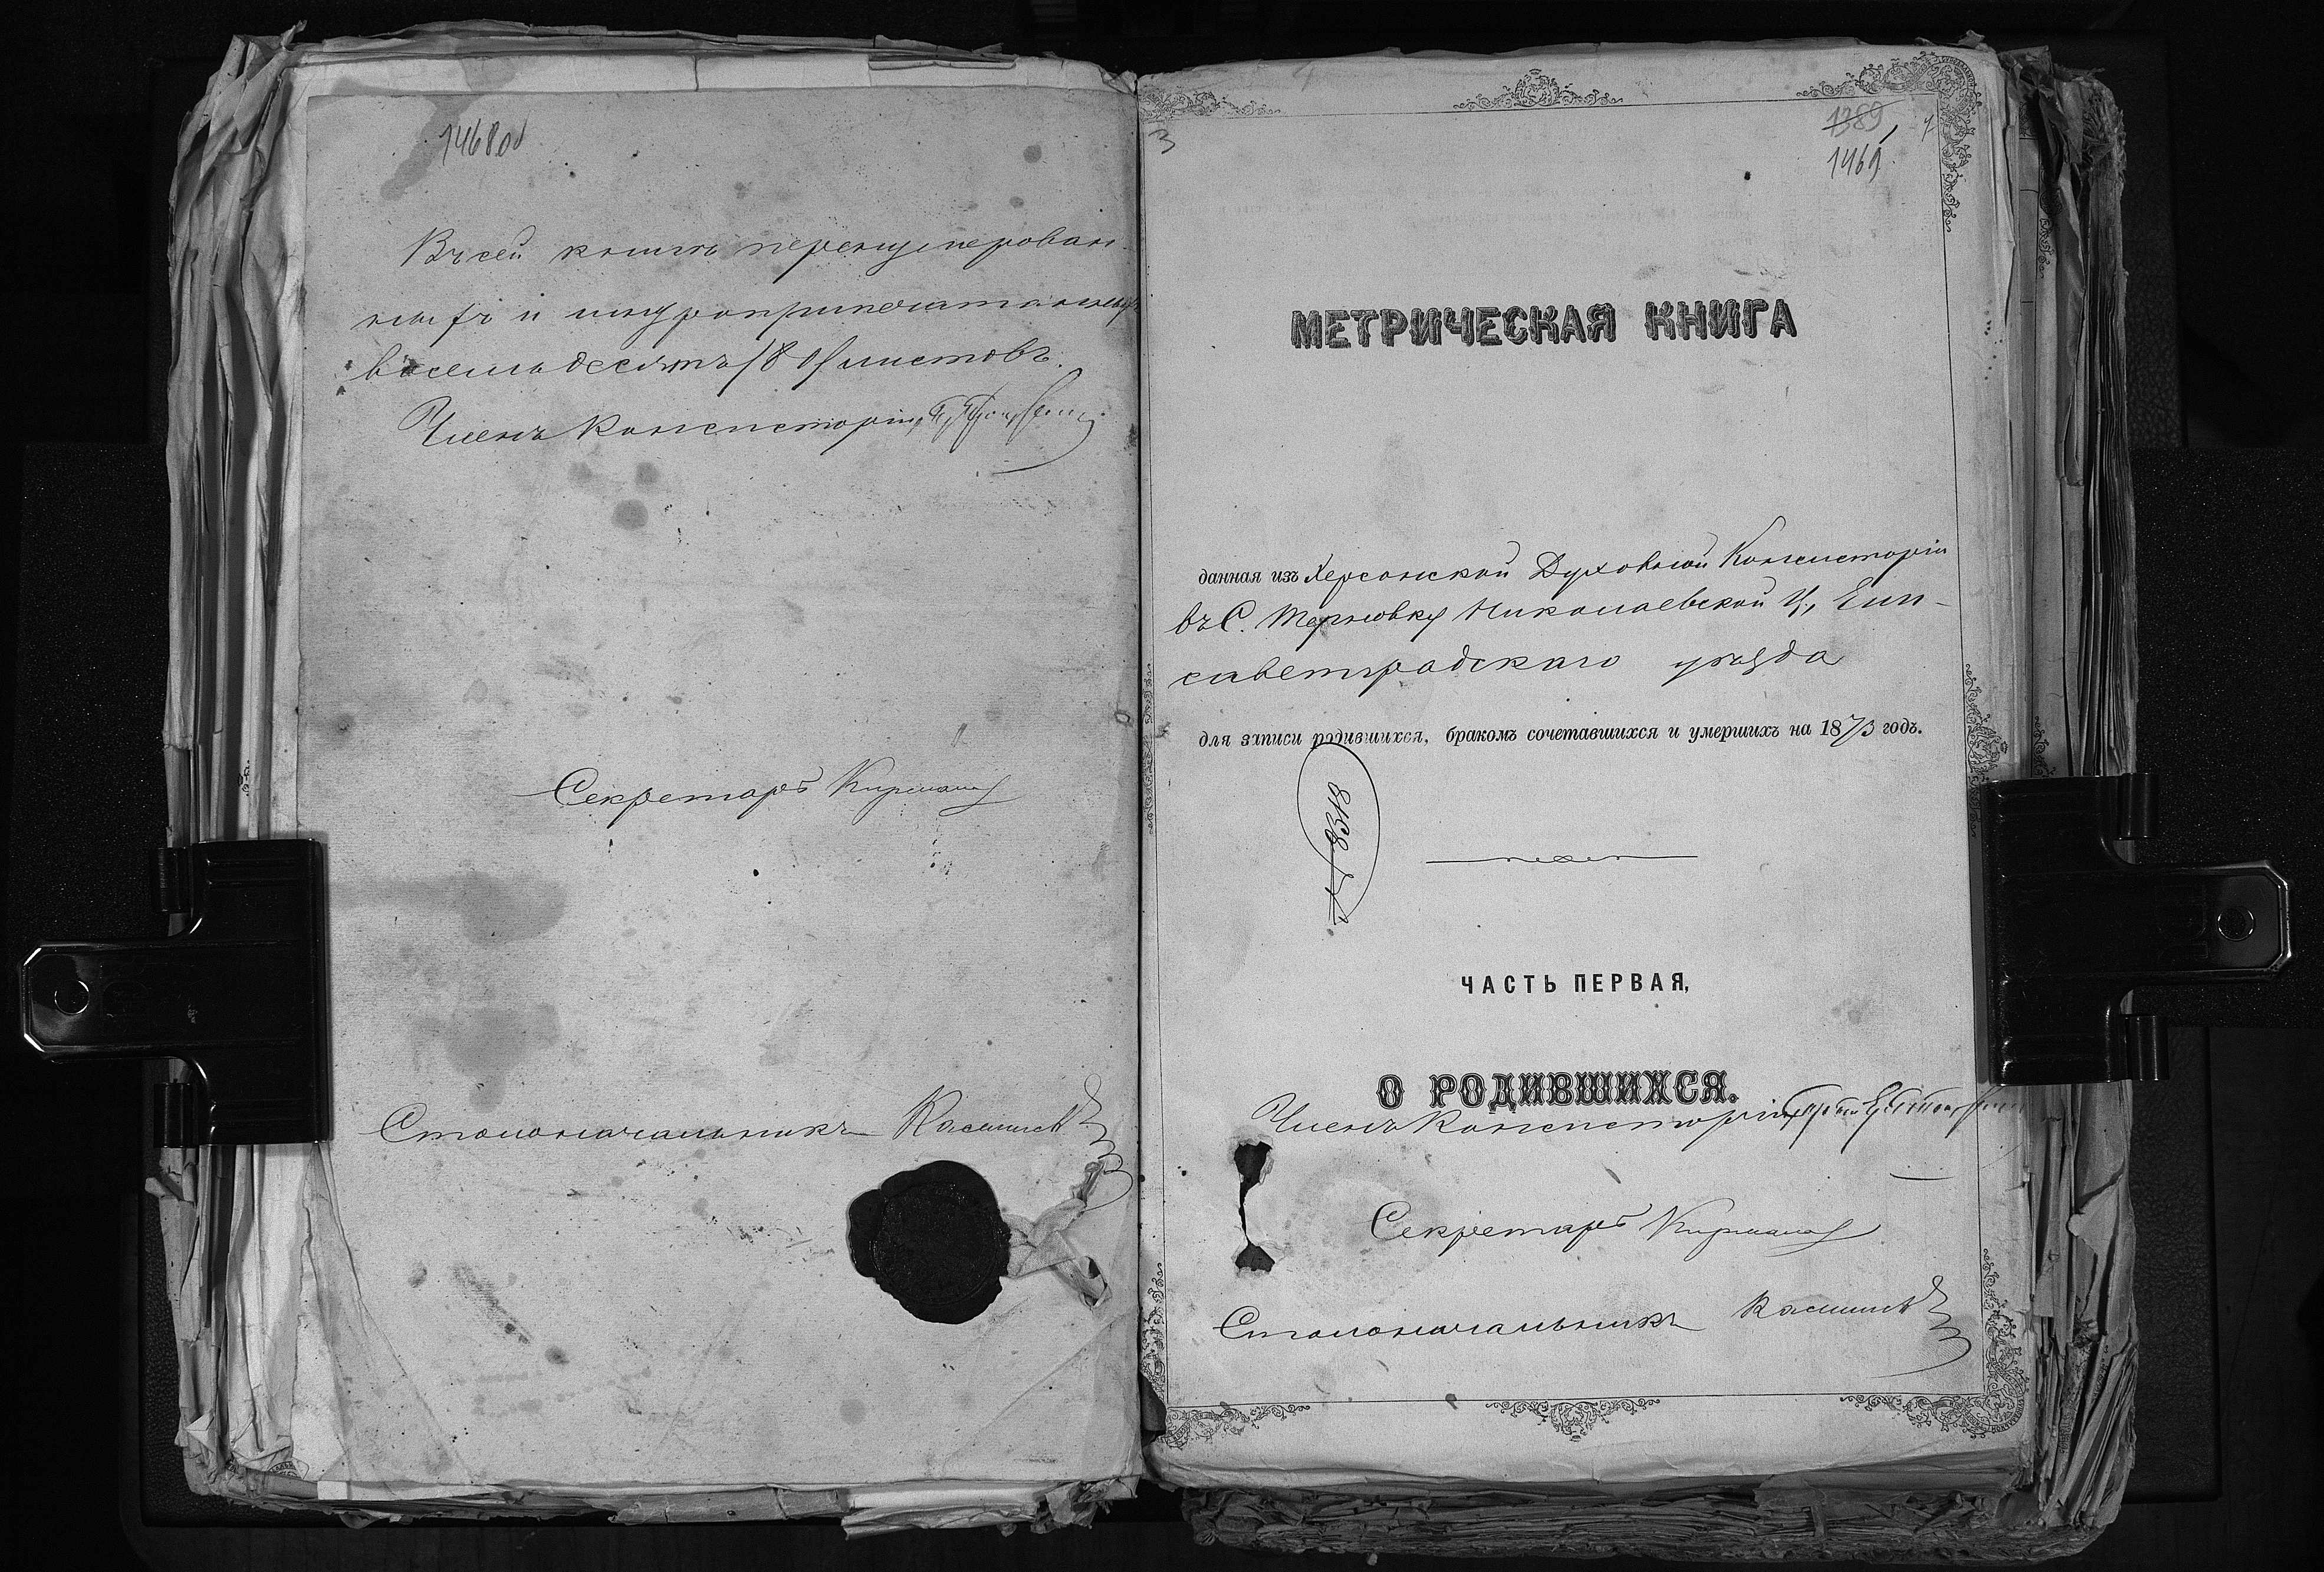 1468об
Въ сей книгѣ перенумерован-
ныхъ и шнуроприпечатанныхъ
восемьдесятъ /80/ листовъ.
Членъ Консисторіи,
Секретарь
Столоначальникъ
3
1389
1469
МЕТРИЧЕСКАЯ КНИГА
данная изъ Херсонской Духовной Консисторіи
въ С. Терновку Николаевской Ц., Ели-
саветградскаго уѣзда
для записи родившихся, бракомъ сочетавшихся и умершихъ на 1873 годъ.
№ 8318
ЧАСТЬ ПЕРВАЯ,
О РОДИВШИХСЯ.
Членъ Консисторіи,
Секретарь
Столоначальникъ